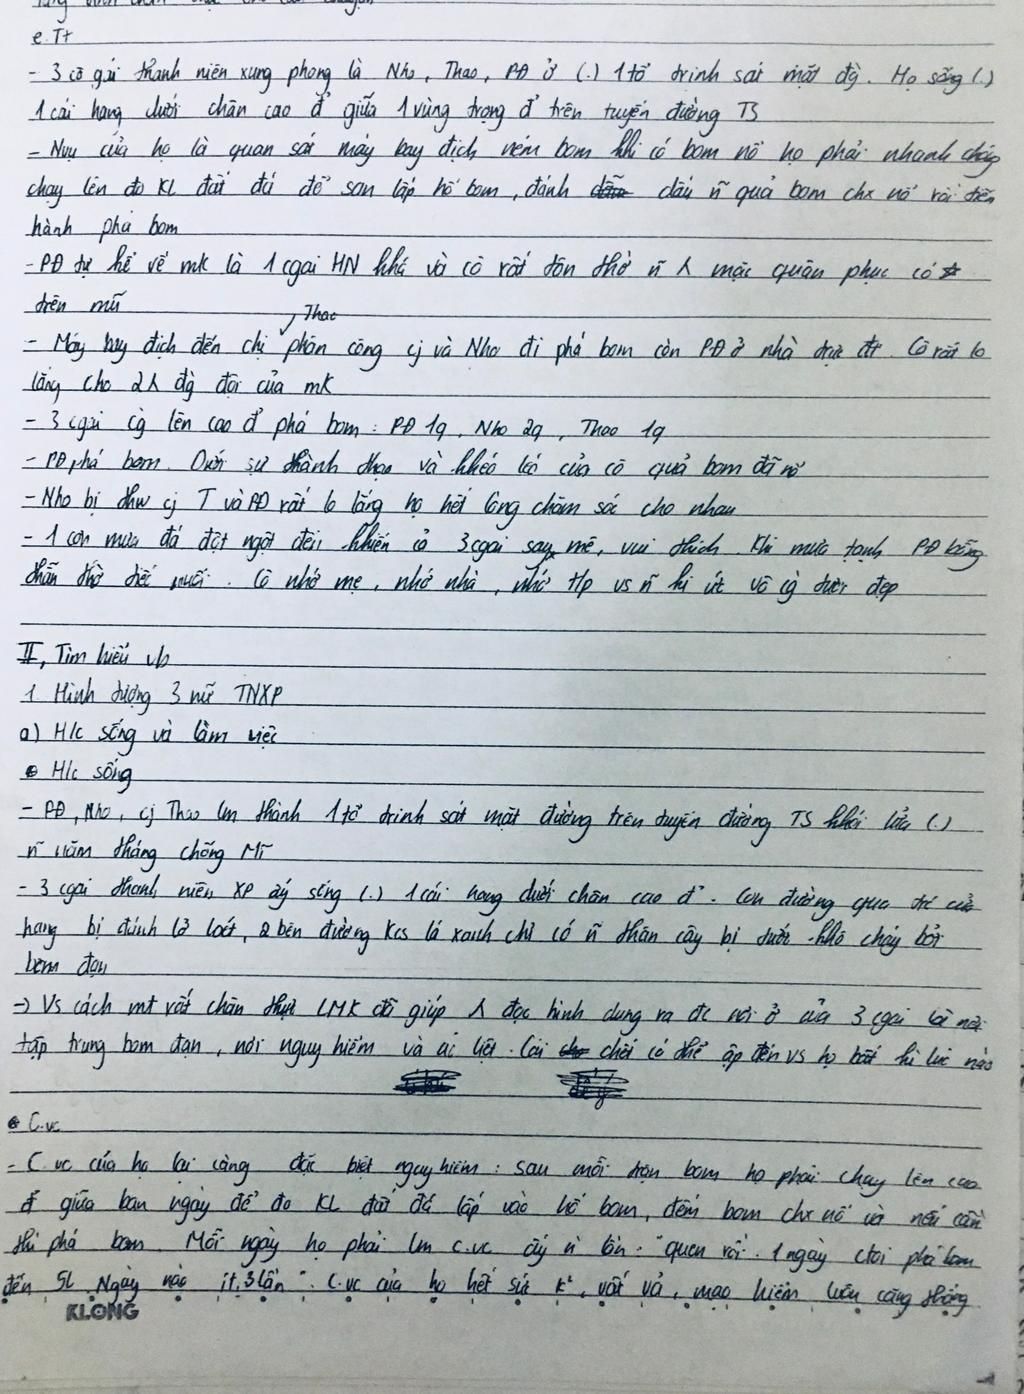 e. Tt
- 3 cô gái thanh niên xung phong là Nho, Thao, PĐ ở (.) 1 tổ trinh sát mặt đg. Họ sống (.)
1 cái hang dưới chân cao đ' giữa 1 vùng trọng đ' trên tuyến đường TS
- Nvụ của họ là quan sát máy bay địch ném bom khi có bom nổ họ phải nhanh chóg
chạy lên đo KL đất đá để san lấp hố bom, đánh dấu ~n quả bom chx nổ rồi tiến
hành phá bom
- PĐ tự kể về mk là 1 cgai HN khá và cô rất tôn thờ ~n λ mặc quân phục có ☆
trên mũ
Thao
- Máy bay địch đến chị phân công cj và Nho đi phá bom còn PĐ ở nhà trực đt. Cô rất lo
lắng cho 2 λ đg đội của mk
- 3 cgái cg lên cao đ' phá bom: PĐ 1q, Nho 2q, Thao 1q
- PĐ phá bom. Dưới sự thành thạo và khéo léo của cô quả bom đã nổ
- Nho bị thw cj T và PĐ rất lo lắng họ hết lòng chăm sóc cho nhau
- 1 cơn mưa đá đột ngột đến khiến cả 3 cgái say mê, vui thích. Khi mưa tạnh PĐ bỗng
thẫn thờ tiếc nuối. Cô nhớ mẹ, nhớ nhà, nhớ tp vs ~n kí ức vô cg tươi đẹp
II, Tìm hiểu vb
1. Hình tượng 3 nữ TNXP
a) H/c sống và làm việc
• H/c sống
- PĐ, Nho, cj Thao lm thành 1 tổ trinh sát mặt đường trên tuyến đường TS khói lửa (.)
~n năm tháng chống Mĩ
- 3 cgai thanh niên XP ấy sống (.) 1 cái hang dưới chân cao đ'. Con đường qua trc cửa
hang bị đánh lở loét, 2 bên đường Kcs lá xanh chỉ có ~n thân cây bị tước khô cháy bởi
bom đạn
=> Vs cách mt rất chân thực LMK đã giúp λ đọc hình dung ra đc nơi ở của 3 cgai là nơi
tập trung bom đạn, nơi nguy hiểm và ác liệt. Cái chết có thể ập đến vs họ bất kì lúc nào
• C.vc
- C.vc của họ lại càng đặc biệt nguy hiểm: sau mỗi trận bom họ phải chạy lên cao
đ' giữa ban ngày để đo KL đất đá lấp vào hố bom, đếm bom chx nổ và nếu cần
thì phá bom. Mỗi ngày họ phải lm c.vc ấy n lần. "quen rồi. 1 ngày ctoi phá bom
đến 5L Ngày nào ít, 3 lần". C.vc của họ hết sức k², vất vả, mạo hiểm luôn căng thẳng
KLONG